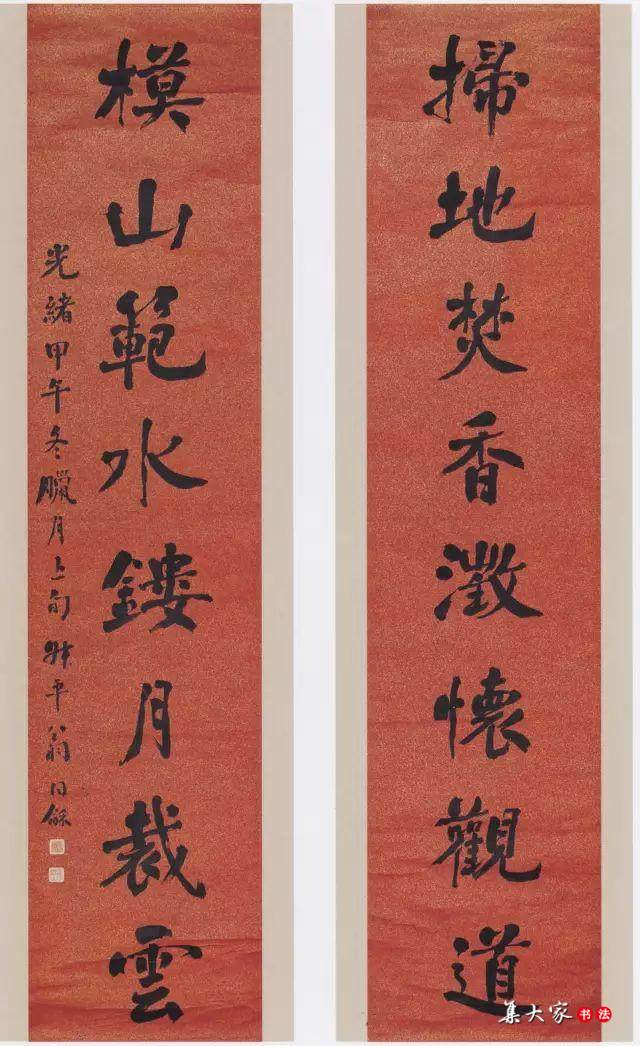 掃地焚香澂懷觀道
模山範水鏤月裁雲
光緒甲午冬臘月上旬叔平翁同龢
集大家书法